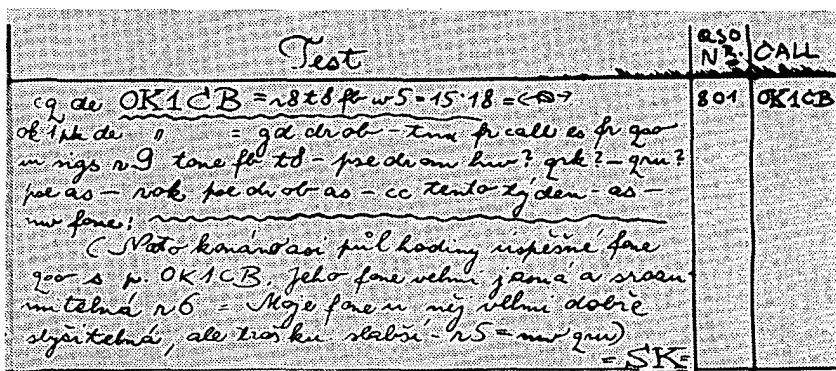 Test
QSO Nº. CALL
cq de OK1CB = r8 t8 fb w5 = 15·18 =
801 OK1CB
ok1pk de " = gd dr ob - tnx fr call es fr qso
ur sigs r9 tone fb t8 - pse dr om hw? qrk? - qru?
pse as - rok pse dr ob as - cc tento týden - as -
nw fone:
(Nato konáno asi půl hodiny úspěšné fone
qso s p. OK1CB. Jeho fone velmi jasná a srozu-
mitelná r6 = Moje fone u něj velmi dobře
slyšitelná, ale trošku slabší - r5 = nw qru)
= SK =